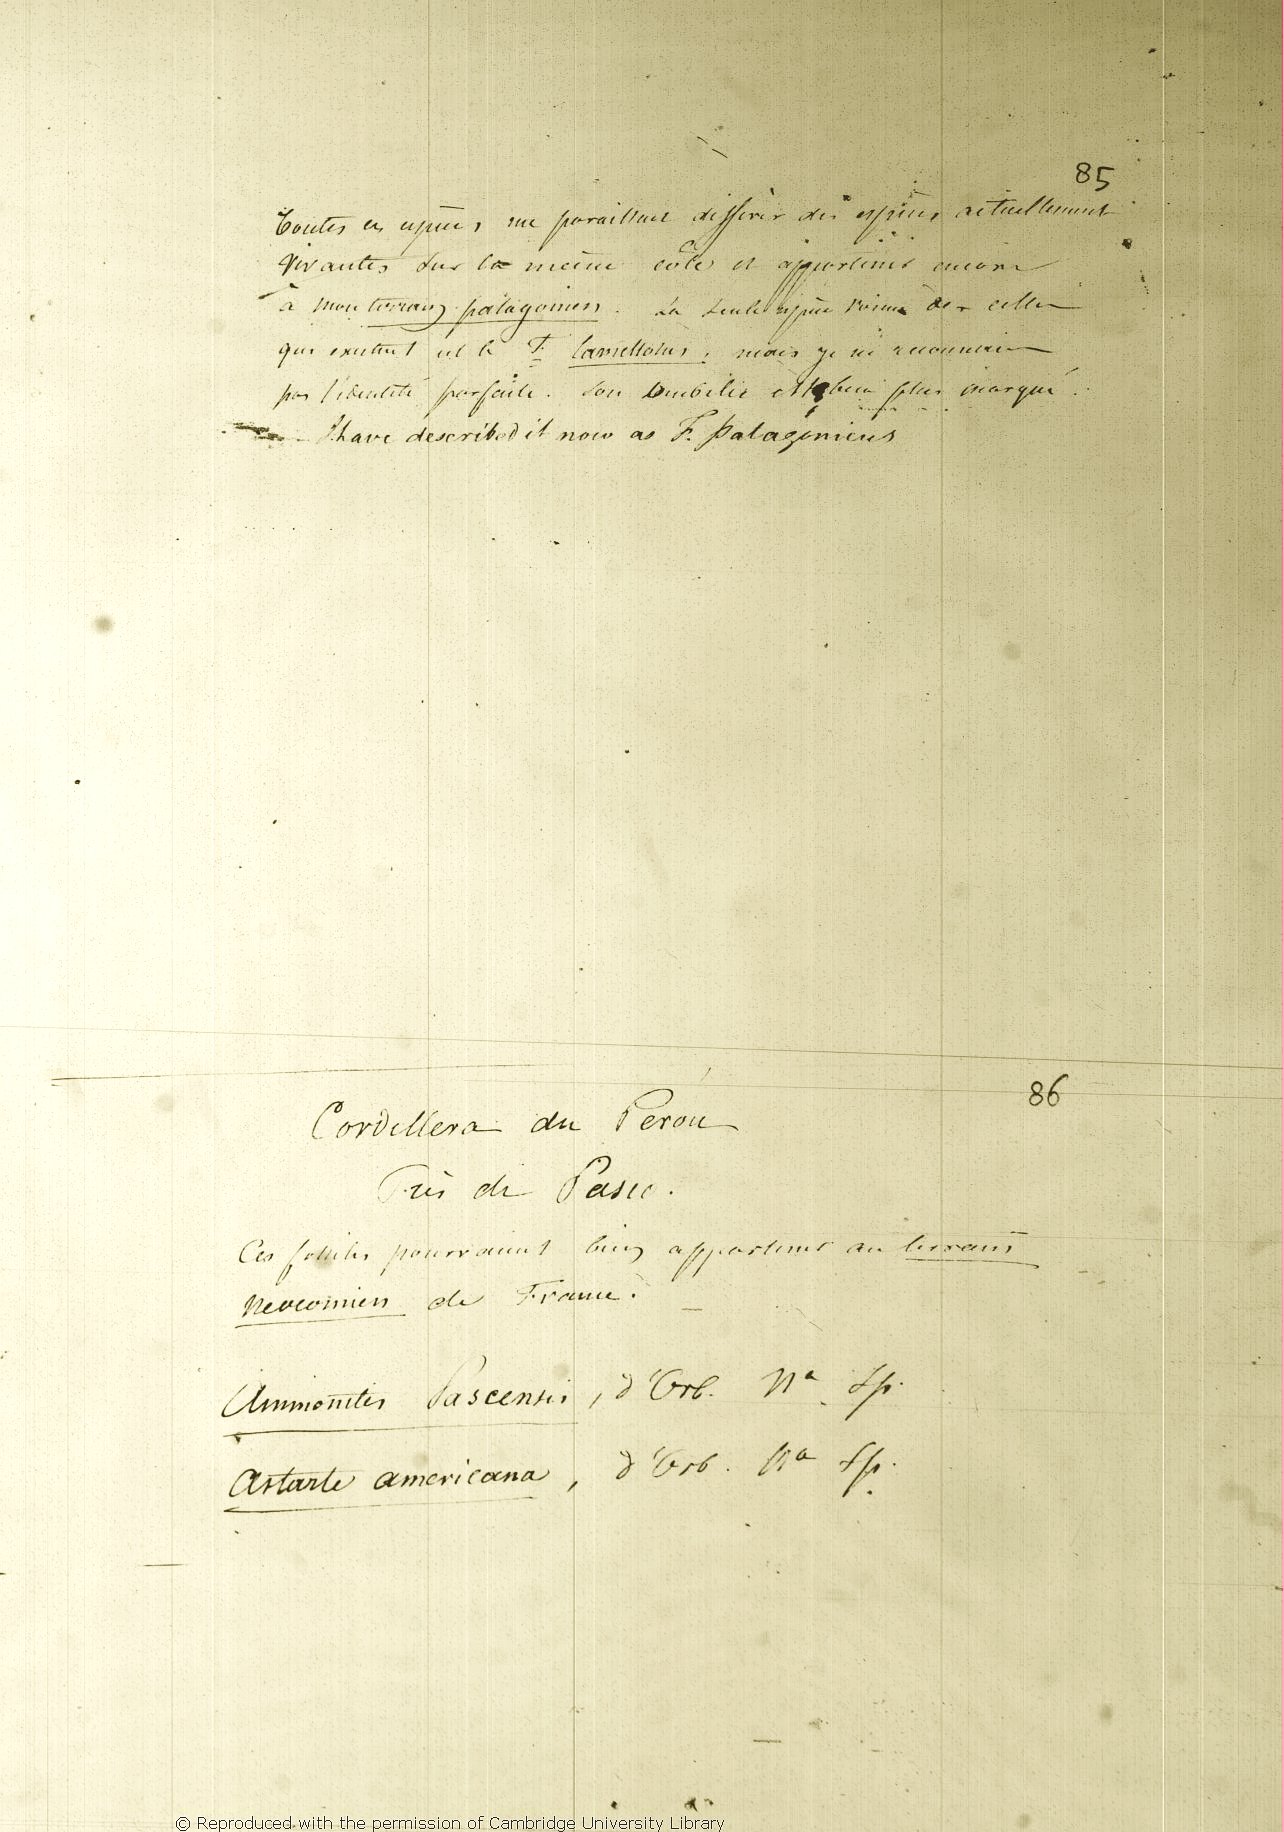 85
Toutes ces espèces me paraissent différer des espèces actuellement
vivantes sur la même côte et appartenir encore
à mon terrain patagonien. La seule espèce voisine de celles
qui existent est le F. lamellosus, mais je ne reconnais
pas l'identité parfaite. Son ombilic est bien plus marqué.
I have described it now as F. Patagonicus
86
Cordillera du Pérou
Près de Pasco.
Ces fossiles pourraient bien appartenir au terrain
néocomien de France.
Ammonites Pascensis, d'Orb. Na Sp.
Astarte americana, d'Orb. Na Sp.
© Reproduced with the permission of Cambridge University Library